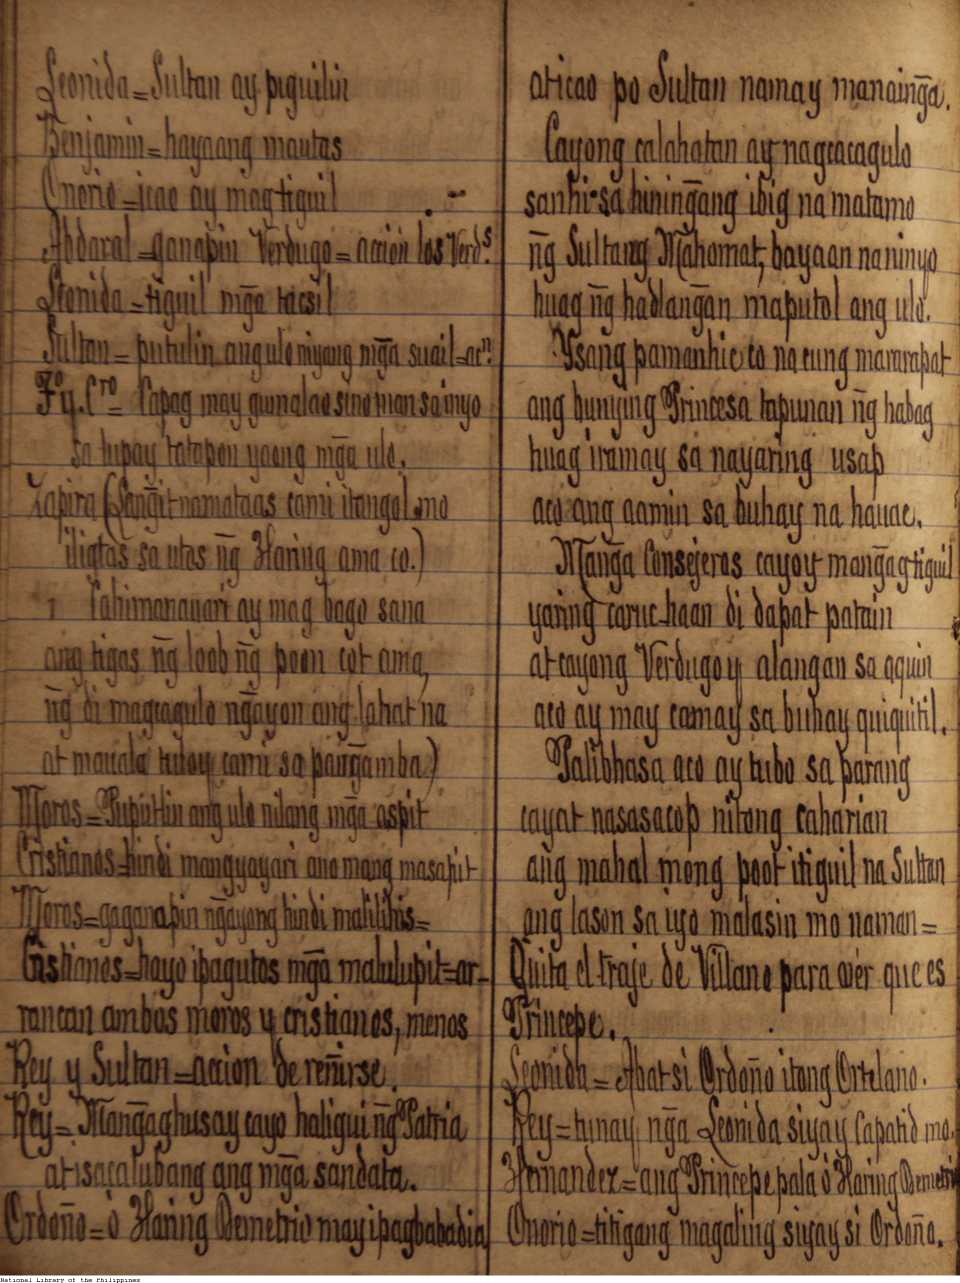 Leonida = Sultan ay piguilin
Benjamin = hayaang mautas
Onorio = icao ay mag tiguil
Abdaral = ganapin Verdugo = accion los Verd.s
Leonida = tiguil mg̃a tacsil
Sultan = putulin ang ulo niyang mg̃a suail = acn.
Fy. Cro = Capag may gumalao sino man sa inyo
sa lupay tatapon yaong mg̃a ulo.
Zapira (Lang̃it na mataas cami itangol mo
iligtas sa utos ng̃ Haring ama co.)
Cahimanauari ay mag bago sana
ang tigas ng̃ loob ng̃ poon cot ama,
ng̃ di magcagulo ng̃ayon ang lahat na
at mauala tuloy cami sa pang̃amba.)
Moros = Puputlin ang ulo nilang mg̃a aspit
Cristianos = hindi mangyayari ano mang masapit
Moros = gaganapin ng̃ayong hindi malilihis =
Cristianos = hayo ipagutos mg̃a malulupit = ar-
rancan ambos moros y cristianos, menos
Rey y Sultan = accion de reñirse.
Rey = Mang̃aghusay cayo haligui ng̃ Patria
at isacalubang ang mg̃a sandata.
Ordoño = ó Haring Demetrio may ipagbabadia
at icao po Sultan namay manaing̃a.
Cayong calahatan ay nagcacagulo
sanhi sa hining̃ang ibig na matamo
ng̃ Sultang Mahomat, bayaan na ninyo
huag ng̃ hadlang̃an maputol ang ulo.
Ysang pamanhic co na cung mararapat
ang bunying Princesa tapunan ng̃ habag
huag iramay sa nayaring usap
aco ang aamin sa buhay na hauac.
Mang̃a Consejeros cayoy mang̃agtiguil
yaring caruc-haan di dapat patain
at cayong Verdugo y alangan sa aquin
aco ay may camay sa buhay quiquitil.
Palibhasa aco ay tubo sa parang
cayat nasasacop nitong caharian
ang mahal mong poot itiguil na Sultan
ang lason sa iyo malasin mo naman =
Quita el traje de Villano para ver que es
Principe.
Leonida = Abat si Ordoño itong Ortelano.
Rey = tunay ng̃a Leonida siyay Capatid mo.
Hernandez = ang Principe pala ó Haring Demetrio
Onorio = titigang magaling siyay si Ordoño.